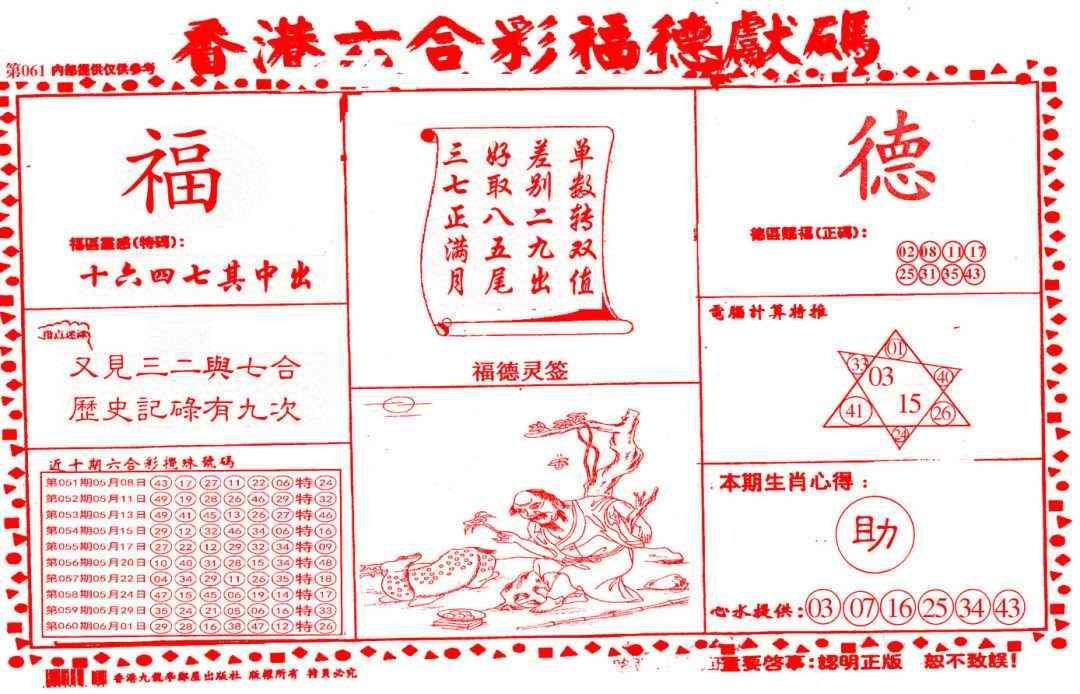 香港六合彩福德獻碼
第061 内部提供仅供参考
福
福區靈感(特碼):
十六四七其中出
又見三二與七合
歷史記碌有九次
近十期六合彩攪珠號碼
第051期05月08日 43 17 27 11 22 06 特 24
第052期05月11日 49 19 28 26 46 29 特 32
第053期05月13日 49 41 45 13 26 27 特 46
第054期05月15日 29 12 32 46 34 06 特 16
第055期05月17日 27 22 12 29 32 34 特 09
第056期05月20日 10 40 31 28 15 34 特 48
第057期05月22日 04 34 29 11 26 35 特 18
第058期05月24日 47 15 45 06 19 14 特 17
第059期05月29日 35 24 21 05 06 16 特 33
第060期06月01日 29 28 16 38 47 12 特 26
单数转双值
差别二九出
好取八五尾
三七正满月
福德灵签
德
德區賜福(正碼):
02 08 11 17
25 31 35 43
電腦計算特推
01
33 03 40
41 15 26
24
本期生肖心得:
助
心水提供: 03 07 16 25 34 43
香港九龍學鄰屋出版社 版權所有 特員必究
重要啓事:認明正版 恕不致誤!